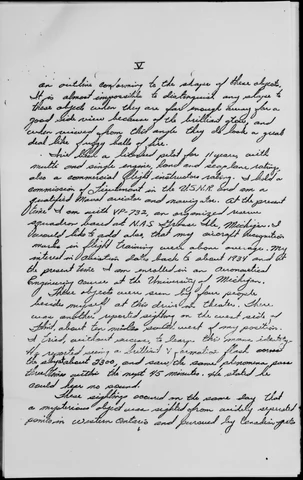 V
an outline conforming to the shape of these objects.
It is almost impossible to distinguish any shape to
these objects when they are far enough away for a
good side view because of the brilliant glow, and
when viewed from this angle they do look a great
deal like fuzzy balls of fire.
I have been a licensed pilot for 11 years, with
multi and single engine, land and seaplane rating,
also a commercial & flight instructors rating. I hold a
commission of Lieutenant in the U.S.N.R. and am a
qualified Naval aviator and navigator. At the present
time I am with VP-732, an organized reserve
squadron based at N.A.S. Grosse Ile, Michigan. I
would like to add also that my aircraft recognition
marks in flight training were above average. My
interest in aviation dates back to about 1934 and at
the present time I am enrolled in an Aeronautical
Engineering course at the University of Michigan.
These objects were seen by four people
beside myself at this drive-in theater. There
was another reported sighting on the west side of
, about ten miles south west of my position.
I tried, without success, to learn this mans identity.
He reported seeing a brilliant V formation flash across
the sky at about 2300, and saw the same phenomena pass
three times within the next 45 minutes. He stated he
could hear no sound.
These sightings occured on the same day that
a mysterious object was sighted from widely seperated
points in western Ontario and pursued by Canadian jets